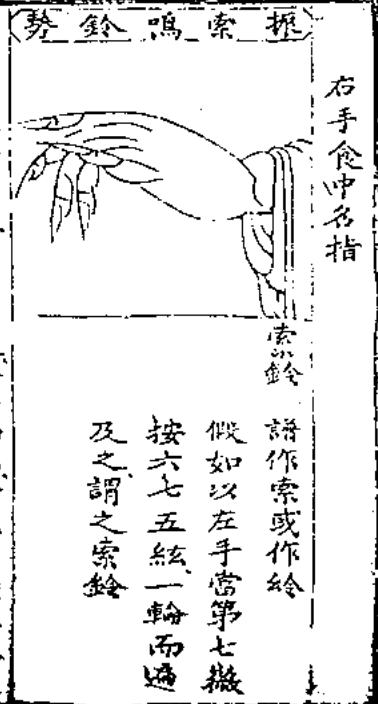 振索鳴鈴勢
右手食中名指
索鈴
譜作索或作紷
假如以左手當第七徽
按六七五絃一輪而遍
及之謂之索鈴